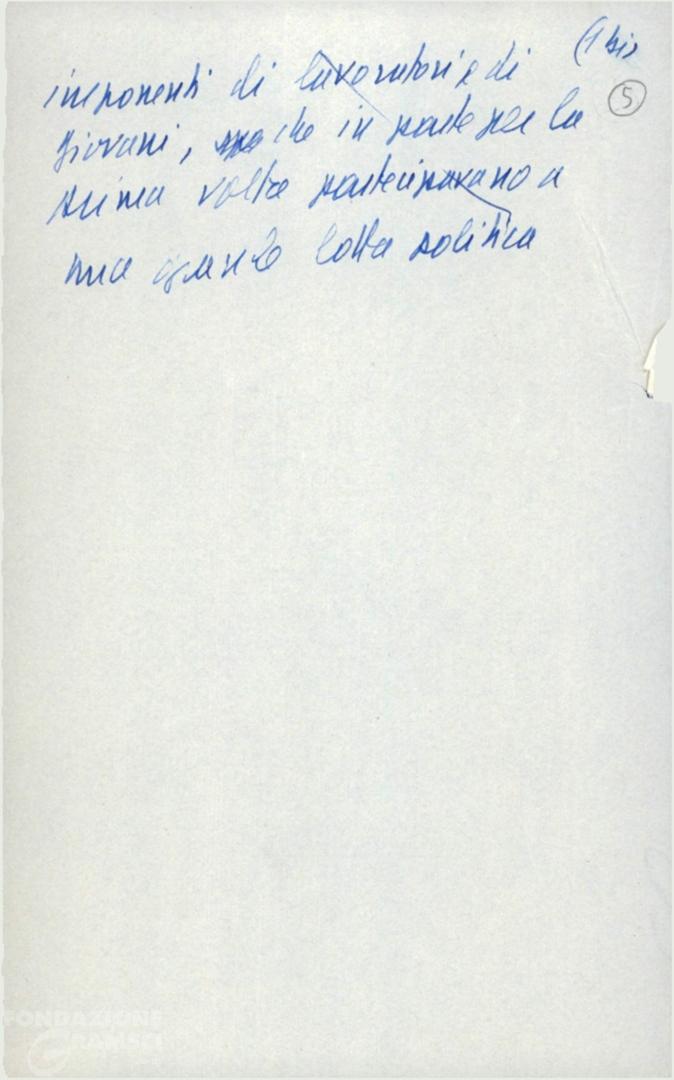 (1 bis)
5
imponenti di lavoratori e di
giovani, che in parte per la
prima volta partecipavano a
una grande lotta politica
FONDAZIONE
GRAMSCI